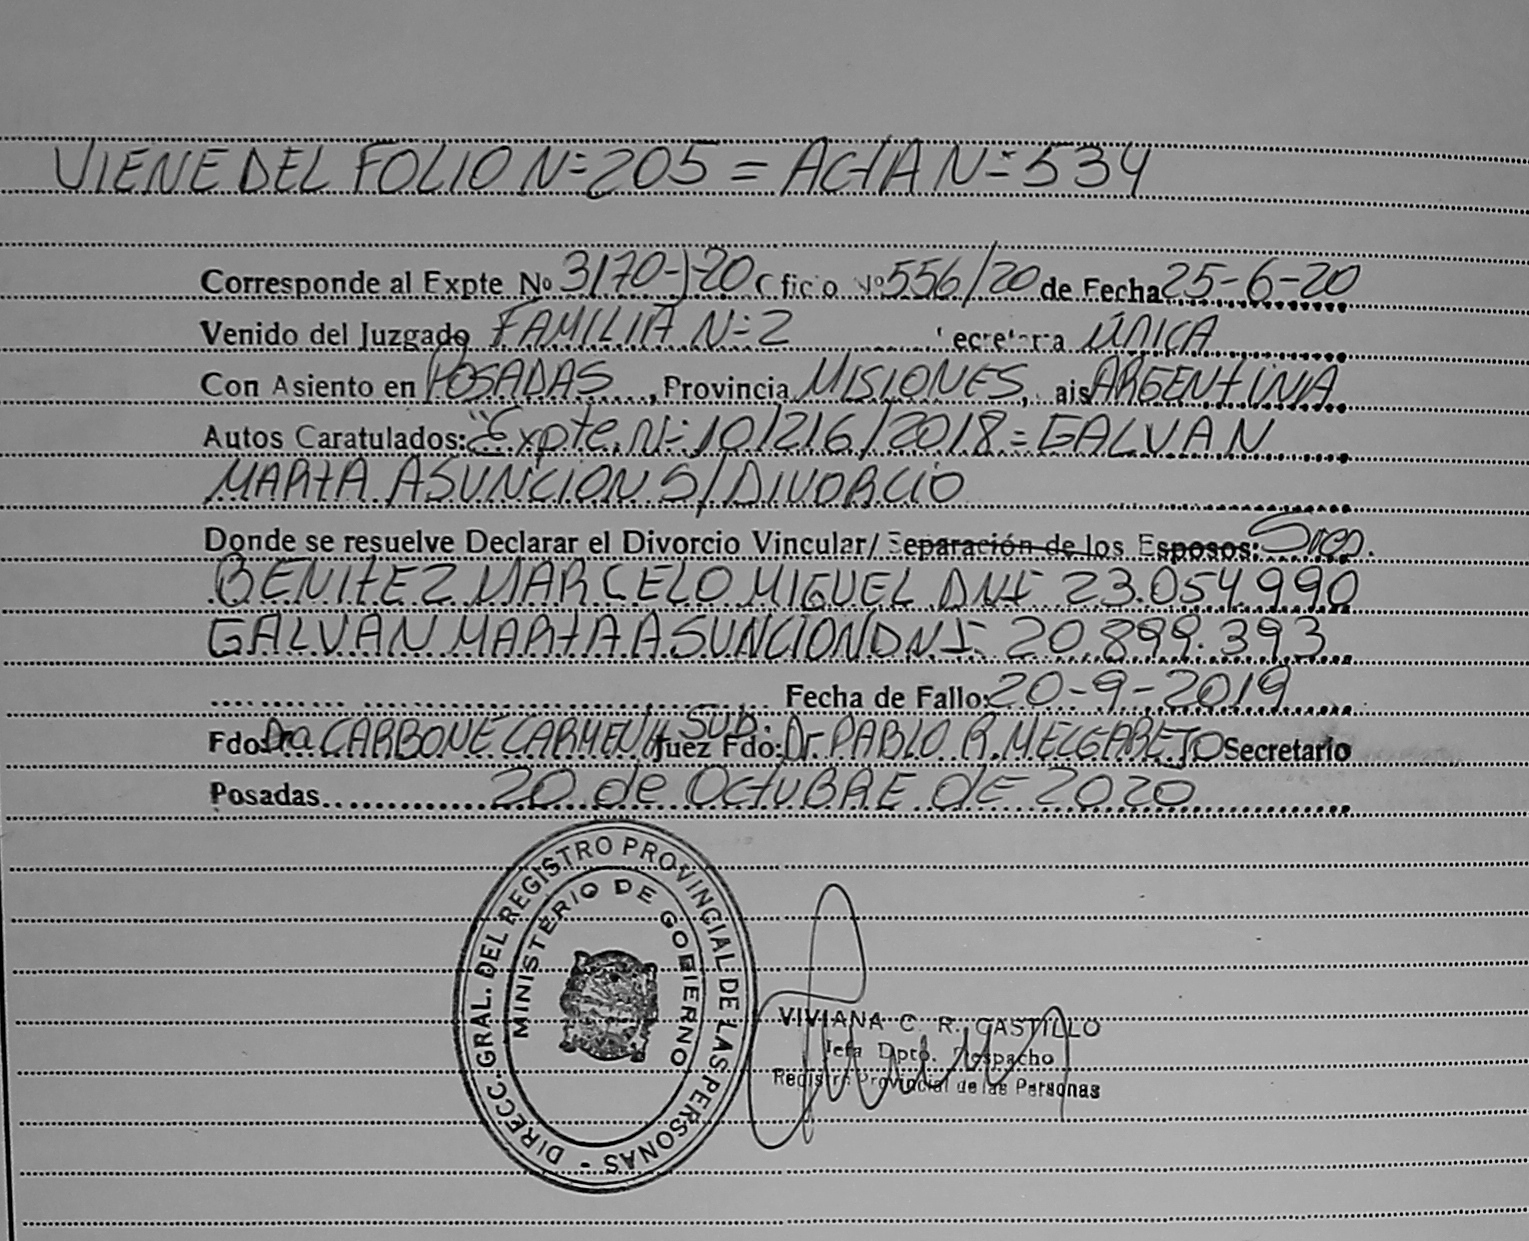 VIENE DEL FOLIO N=205 = ACTA N=534
Corresponde al Expte Nº 3170-J-20 Oficio Nº 556/20 de Fecha 25-6-20
Venido del Juzgado FAMILIA N=2 Secretaria ÚNICA
Con Asiento en POSADAS, Provincia MISIONES, Pais ARGENTINA
Autos Caratulados: "Expte. N=101216/2018=GALVAN
MARTA ASUNCION S/DIVORCIO
Donde se resuelve Declarar el Divorcio Vincular/ Separación de los Esposos: Sres.
BENITEZ MARCELO MIGUEL DNI 23.054.990
GALVAN MARTA ASUNCION DNI 20.899.393
Fecha de Fallo: 20-9-2019
Fdo: Dra CARBONE CARMEN H. Juez SUB. Fdo: Dr. PABLO R. MELGAREJO Secretario
Posadas 20 de OCTUBRE DE 2020
DIRECC. GRAL. DEL REGISTRO PROVINCIAL DE LAS PERSONAS -
MINISTERIO DE GOBIERNO
VIVIANA C. R. CASTILLO
Jefa Dpto. Despacho
Registro Provincial de las Personas